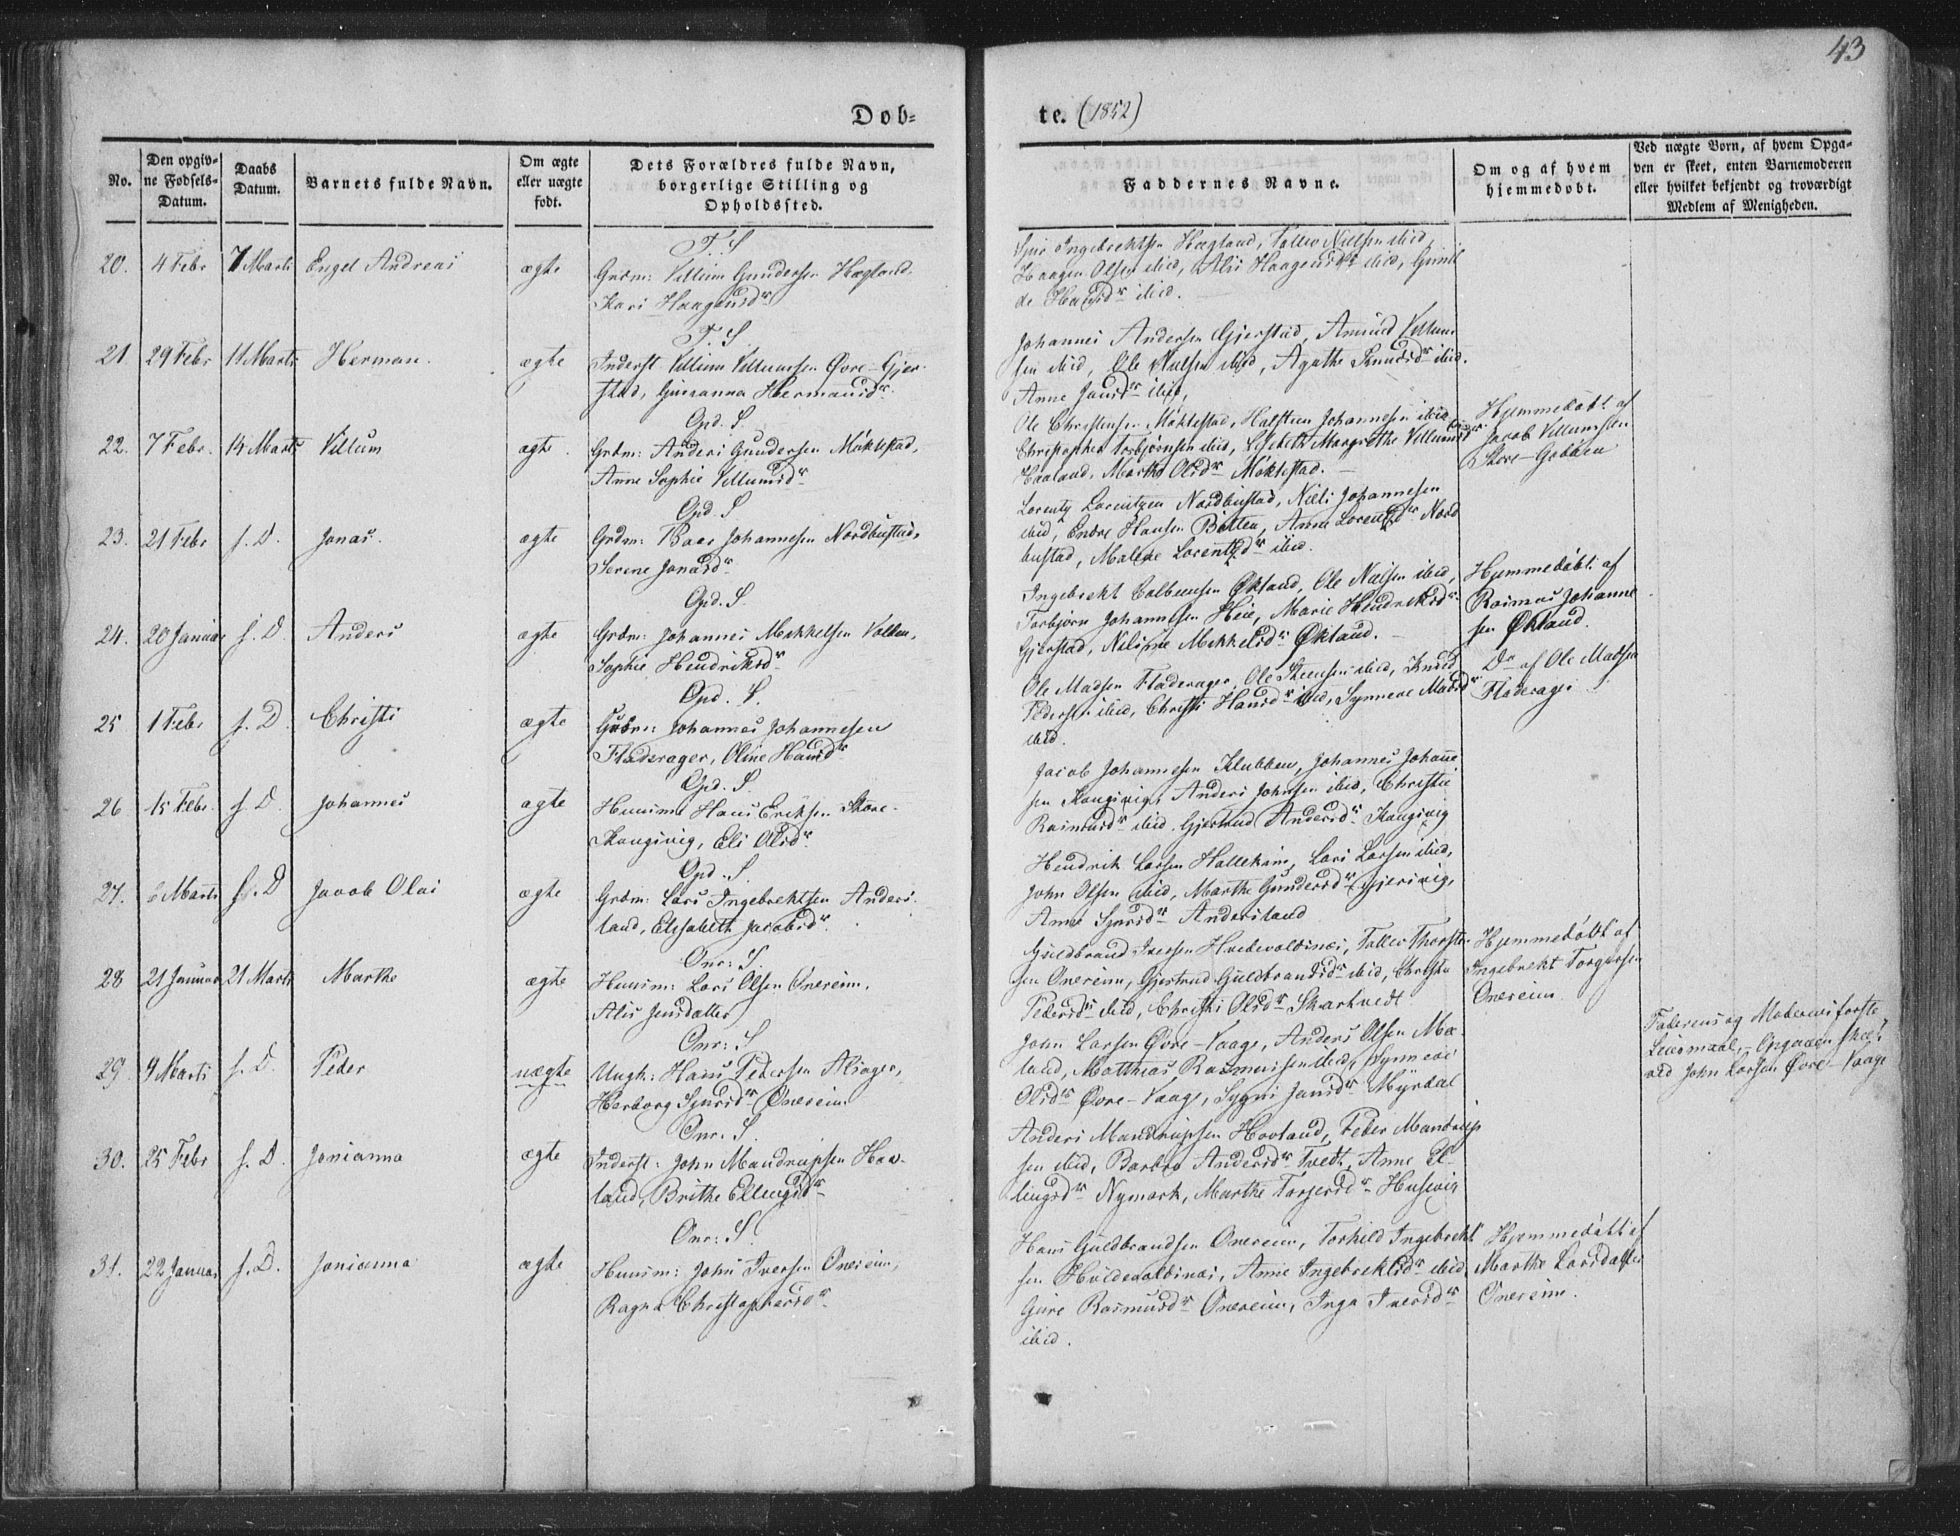 43
Døb- te. (1852)
No.
Den opgiv-
ne Fødsels-
Datum.
Daabs
Datum.
Barnets fulde Navn.
Om ægte
eller uægte
født.
Dets Forældres fulde Navn,
borgerlige Stilling og
Opholdssted.
Faddernes Navne.
Om og af hvem
hjemmedøbt.
Ved uægte Børn, af hvem Opga-
ven er skeet, enten Barnemoderen
eller hvilket bekjendt og troværdigt
Medlem af Menigheden.
T. S.
20. 4 Febr 7 Marts Engel Andreas ægte Grdm: Villum Gundersen Hægland
Kari Haagensdr
Sjur Ingebrektsen Hægland, Tallev Nielsen ibid,
Haagen Olsen ibid, Alis Haagensdr ibid, Gunil
de Hansdr ibid.
T. S.
21. 29 Febr 11 Marts Herman. ægte Inderst Villum Villumsen Øvre-Gjer-
stad, Hermansdr
Johannes Andersen Gjerstad, Amund Villum
sen ibid, Ole Nielsen ibid, Agathe Knudsdr ibid.
Anne Jansdr ibid,
Opd. S.
22. 7 Febr. 14 Marts Villum ægte. Grdm: Anders Gundersen Møklestad,
Anne Sophie Villumsdr
Ole Christensen Møklestad, Halsteen Johannesen ibid
Christopher Torbjørnsen ibid, Margrethe Villumsdr
Haaland, Martha Olsdr Møklestad.
Hjemmedøbt af
Jacob Villumsen
Store-Gobben
Opd. S
23. 21 Febr s. D. Jonas. ægte Grdm: Baar Johannesen Nordbustad,
Serene Jonasdr
Lorentz Lorentzen Nordbustad, Niels Johannesen
ibid, Endre Hansen Botten, Anna Lorentzdr Nord
bustad, Malene Lorentzdr ibid.
Opd. S.
24. 20 Januar s. D. Anders ægte Grdm: Johannes Mekkelsen Volden,
Sophie Hendriksdr
Ingebrekt Colbensen Økland, Ole Nielsen ibid,
Torbjørn Johannesen Heie, Marie Hendriksdr
Gjerstad, Nilsine Mekkelsdr Økland.
Hjemmedøbt af
Rasmus Johanne
sen Økland.
Opd. S.
25 1 Febr s. D. Christi ægte Grdm: Johannes Johannesen
Fladerager, Oline Hansdr
Ole Madsen Fladerager, Ole Steensen ibid, Knud
Pedersen ibid, Christi Hansdr ibid, Synneve Madsdr
ibid.
Do af Ole Madsen
Fladerager
Opd. S.
26 15 Febr. s. D. Johannes ægte Huusm: Hans Eriksen Store-
Kongsvig, Eli Olsdr
Jacob Johannesen Klubben, Johannes Johanne
sen Kongsvig, Anders Johnsen ibid, Christi
Rasmusdr ibid. Gjertrud Andersdr Kongsvig
Opd. S.
27. 6 Marts s. D Jacob Olai ægte Grdm: Lars Ingebrektsen Anders-
land, Elisabeth Jacobsdr
Hendrik Larsen Hallekim, Lars Larsen ibid,
John Olsen ibid, Marthe Gundersdr Gjersvig,
Anne Sjursdr Andersland
Onr: S.
28 21 Januar 21 Marts Marthe ægte Huusm: Lars Olsen Onereim,
Alis Jensdatter
Guldbrand Iversen Hvedevoldsnæs, Tallev Thorste-
sen Onereim, Gjertrud Guldbrandsdr ibid, Christi
Pedersdr ibid, Christi Olsdr Skartvedt
Hjemmedøbt af
Ingebrekt Torgersen
Onereim
Onr: S
29. 9 Marts s. D. Peder uægte Ungk: Hans Pedersen Alsager,
Herborg Sjursdr Onereim
John Larsen Øvre-Vaage, Anders Olsen Mæ
land, Matthias Rasmussen ibid, Synneve
Olsdr Øvre-Vaage, Sygni Jansdr Myrdal
Faderens og Moderens første
Leiermaal,- Opgaven skeet
ved John Larsen Øvre-Vaage
Onr: S.
30. 25 Febr s. D. Jonianna ægte Inderst: John Mandrupsen Hov-
land, Brithe Ellingsdr
Anders Mandrupsen Hovland, Peder Mandrup
sen ibid, Barbro Andersdr Tvedt, Anne El-
lingsdr Nymark, Marthe Torgersdr Husevig
Onr: S.
31. 22 Januar s. D. Jonianna ægte Huusm: John Iversen Onereim,
Ragna Christophersdr
Hans Guldbrandsen Onereim, Torkild Ingebrekt
sen Hvidevoldsnæs, Anne Ingebrektsdr ibid,
Guro Rasmusdr Onereim, Inga Iversdr
ibid.
Hjemmedøbt af
Marthe Larsdatter
Onereim.